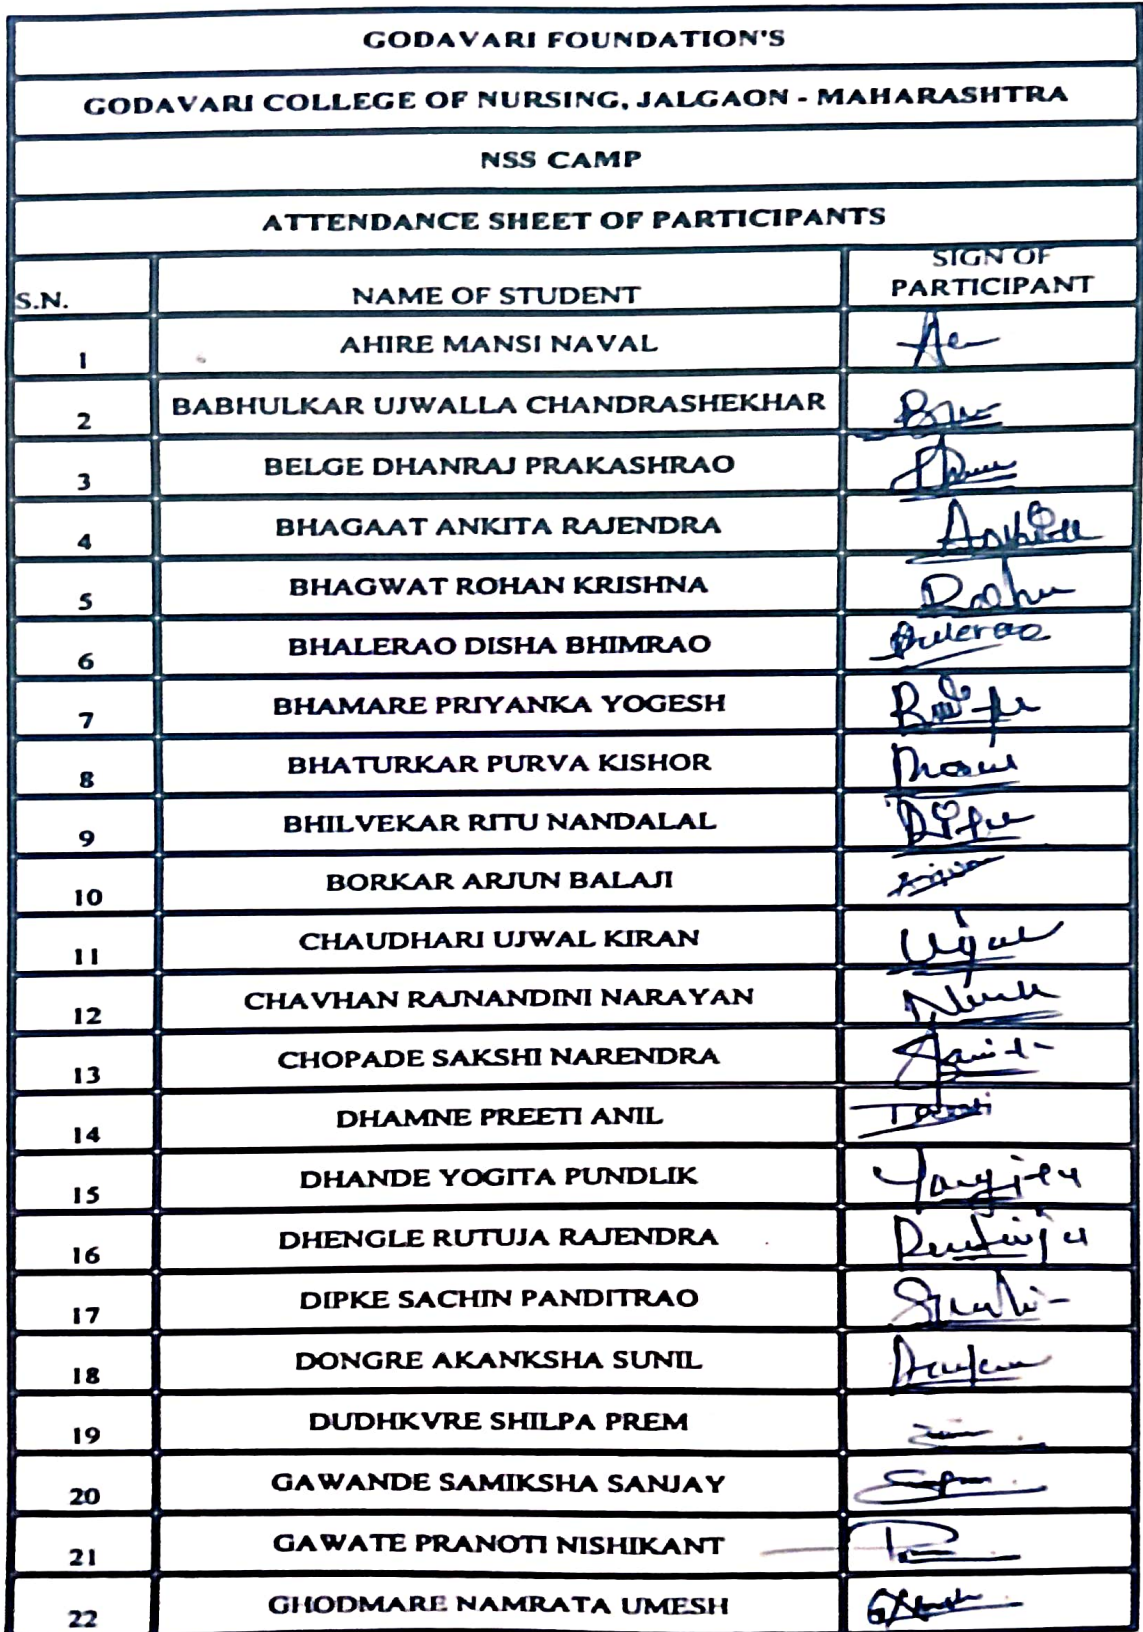 GODAVARI FOUNDATION'S
GODAVARI COLLEGE OF NURSING, JALGAON - MAHARASHTRA
NSS CAMP
ATTENDANCE SHEET OF PARTICIPANTS
S.N. NAME OF STUDENT SIGN OF PARTICIPANT
1 AHIRE MANSI NAVAL
2 BABHULKAR UJWALLA CHANDRASHEKHAR
3 BELGE DHANRAJ PRAKASHRAO
4 BHAGAAT ANKITA RAJENDRA
5 BHAGWAT ROHAN KRISHNA
6 BHALERAO DISHA BHIMRAO Bhalerao
7 BHAMARE PRIYANKA YOGESH
8 BHATURKAR PURVA KISHOR
9 BHILVEKAR RITU NANDALAL
10 BORKAR ARJUN BALAJI
11 CHAUDHARI UJWAL KIRAN
12 CHAVHAN RAJNANDINI NARAYAN
13 CHOPADE SAKSHI NARENDRA
14 DHAMNE PREETI ANIL
15 DHANDE YOGITA PUNDLIK
16 DHENGLE RUTUJA RAJENDRA
17 DIPKE SACHIN PANDITRAO
18 DONGRE AKANKSHA SUNIL
19 DUDHKVRE SHILPA PREM
20 GAWANDE SAMIKSHA SANJAY
21 GAWATE PRANOTI NISHIKANT
22 GHODMARE NAMRATA UMESH